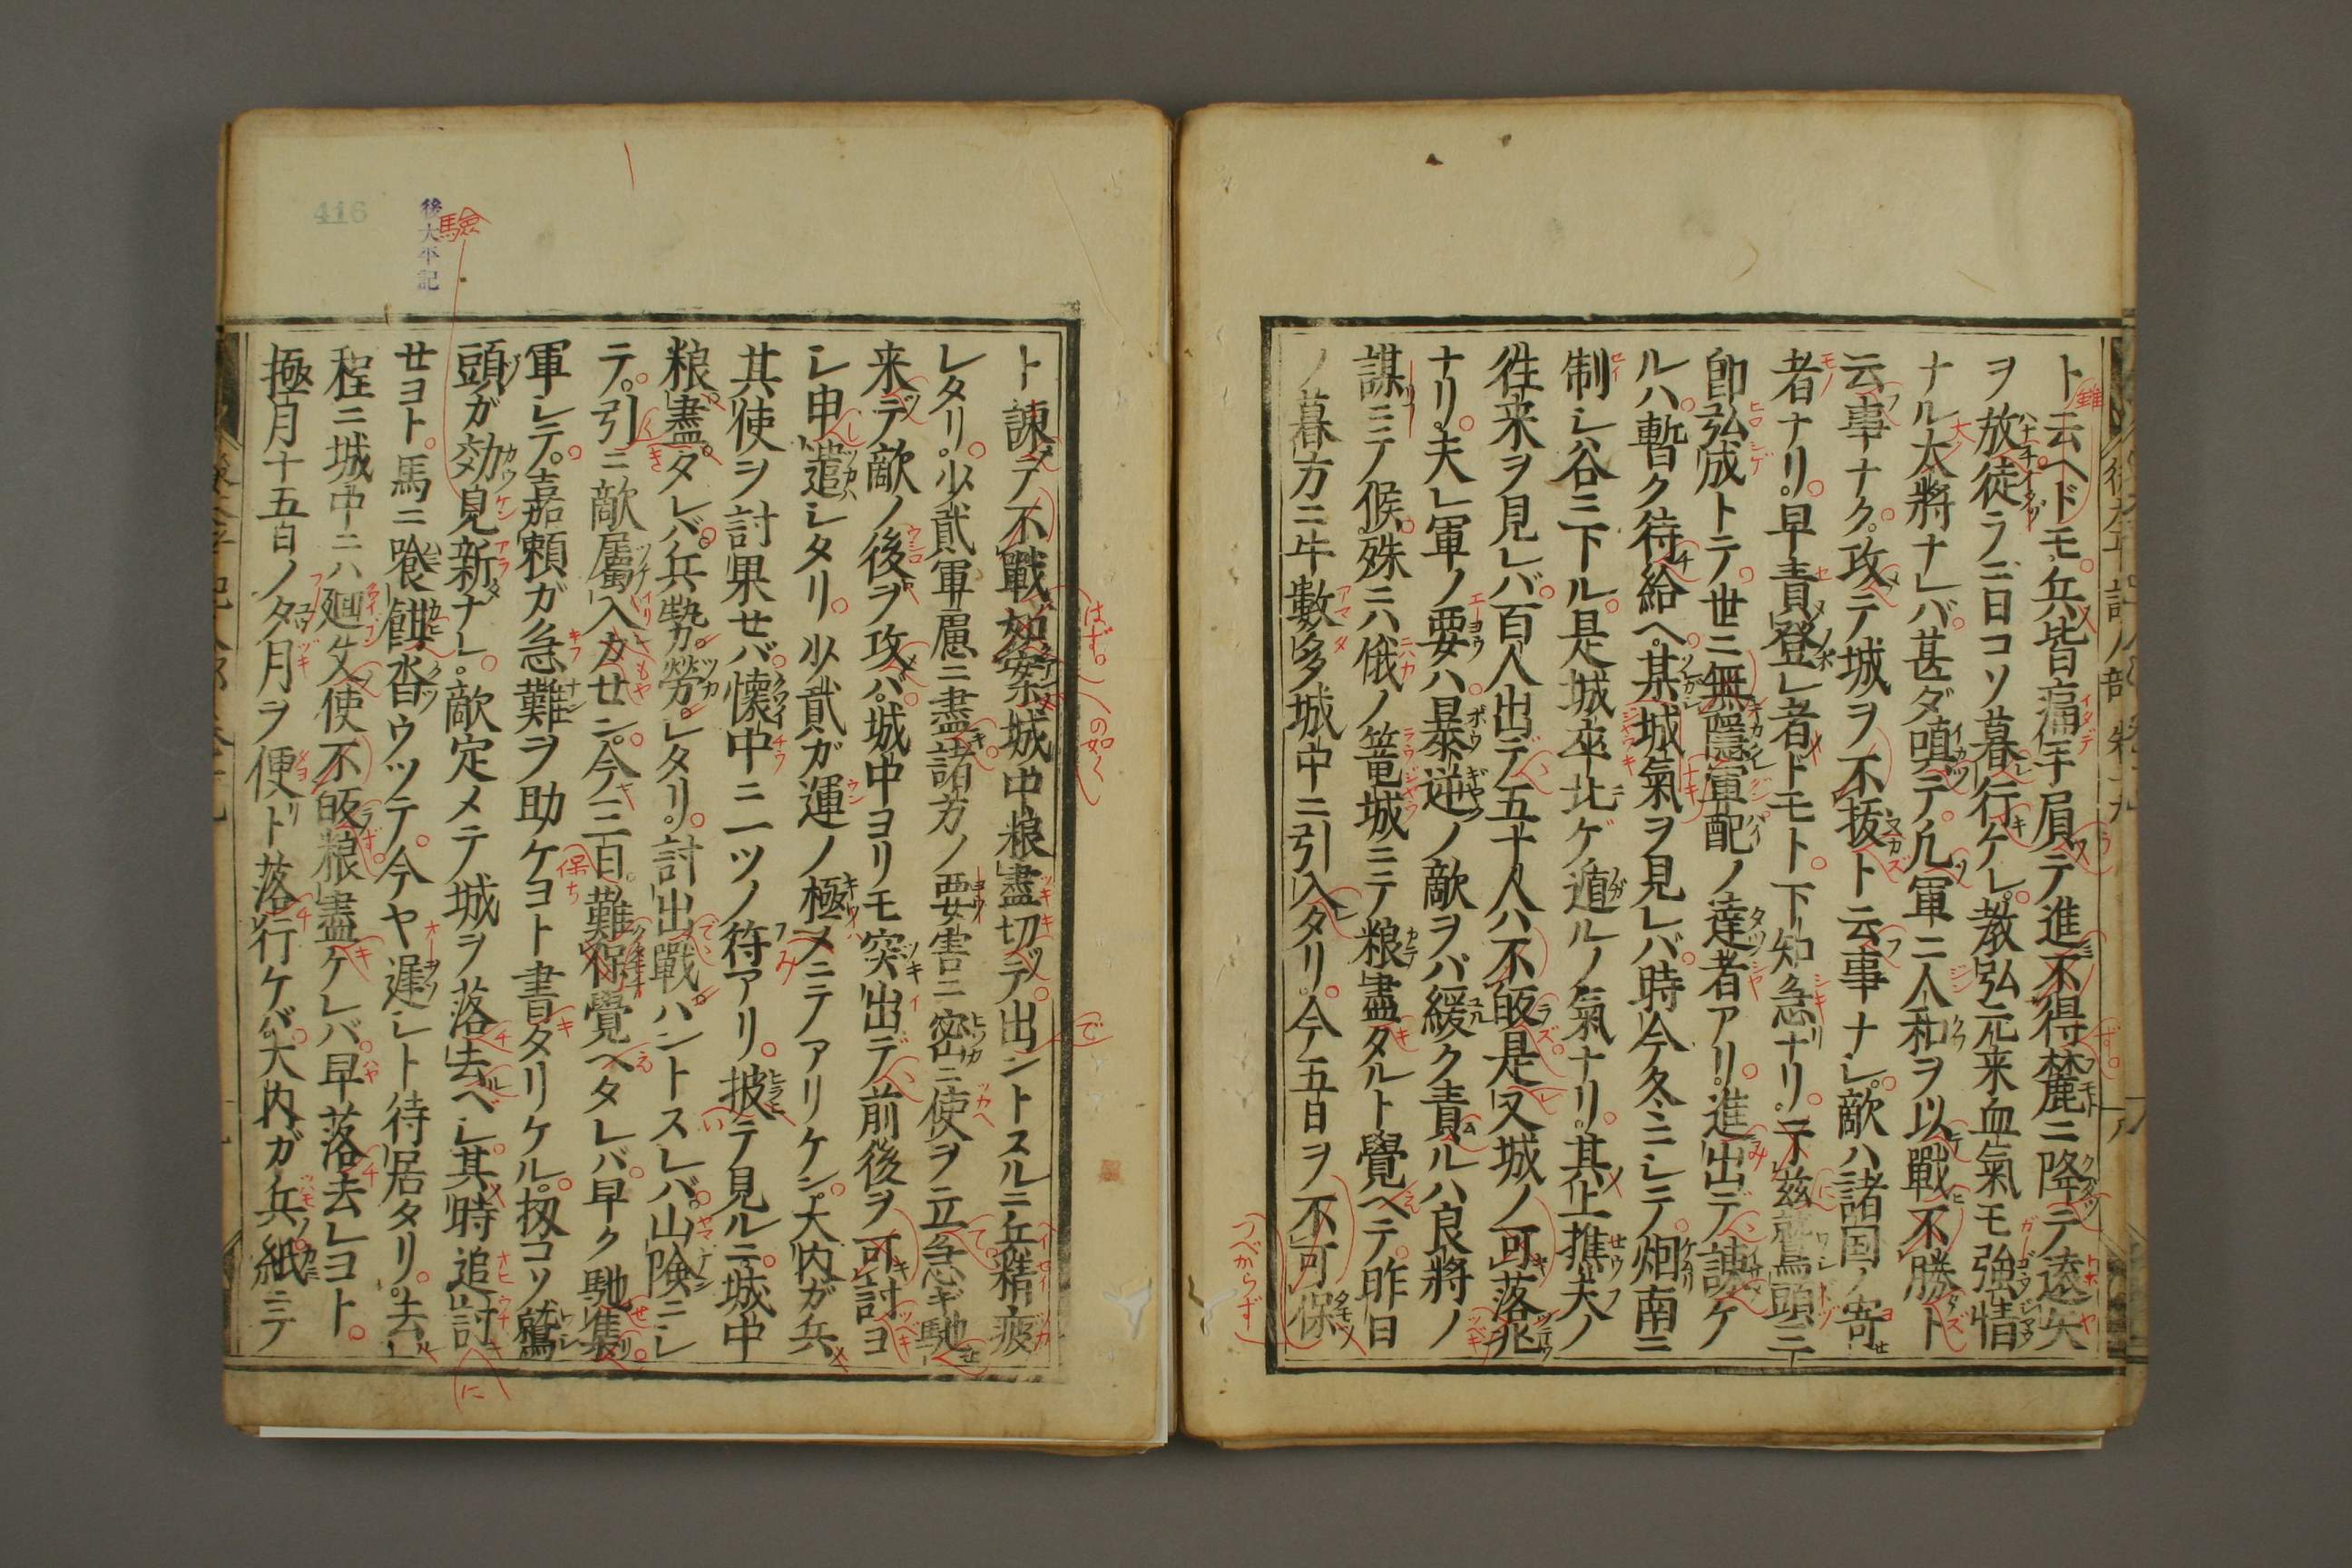 ト云ヘドモ兵皆痛手屓テ進不得麓ニ降テ遠矢
ヲ放徒ラニ日コソ暮行ケレ教弘元来血氣モ強情
ナル大將ナレバ甚ダ嗔テ凢軍ニ人和ヲ以戰不勝ト
云事ナク攻テ城ヲ不抜ト云事ナレ敵ハ諸国ノ寄
者ナリ早責登レ者ドモト下知急ナリ于茲鷲頭三
卽弘成トテ世ニ無隱軍配ノ達者アリ進出デ諌ケ
ルハ暫ク待給ヘ某城氣ヲ見レバ時今冬ニシテ烟南ニ
制シ谷ニ下ル是城卒北ゲ遁ルノ氣ナリ其上樵夫ノ
徃来ヲ見レバ百人出デ五十人ハ不皈是又城ノ可落兆
ナリ夫レ軍ノ要ハ暴逆ノ敵ヲバ緩ク責ルハ良將ノ
謀ニテ候殊ニハ俄ノ篭城ニテ粮盡タルト覺ヘテ昨日
ノ暮方ニ牛數多城中ニ引入タリ今五日ヲ不可保
ト諌テ不戰如案城中粮盡切デ出ントスルニ兵精疲
レタリ少貳軍慮ニ盡諸方ノ要害ニ密ニ使ヲ立急ギ馳
来デ敵ノ後ヲ攻バ城中ヨリモ突出デ前後ヲ可討ヨ
シ申遣シタリ少貳ガ運ノ極メニテアリケン大内ガ兵
其使ヲ討果セバ懐中ニ一ツノ符アリ披テ見ルニ城中
粮盡タレバ兵勢勞レタリ討出戰ハントスレバ山険ニシ
テ引ニ敵属入カセン今三日難保覺ヘタレバ早ク馳集
軍シテ嘉頼ガ急難ヲ助ケヨト書タリケル扨コソ鷲
頭ガ効見新ナレ敵定メテ城ヲ落去ベシ其時追討
セヨト馬ニ喰餌沓ウツテ今ヤ遅シト待居タリ去
程ニ城中ニハ廻文使不皈粮盡ケレバ早落去レヨト
極月十五日ノ夕月ヲ便ト落行ケバ大内ガ兵紙ニテ
後太平記
416
驗
はず。
の如く
で
保ち
に
つべからず
雖